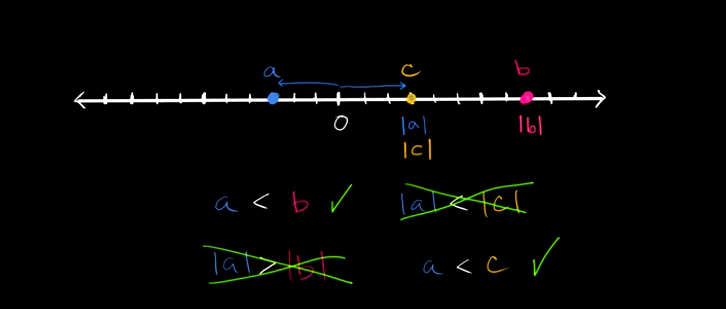 a c b
0 |a| |b|
|c|
a < b ✓ |a| < |c|
|a| > |b| a < c ✓